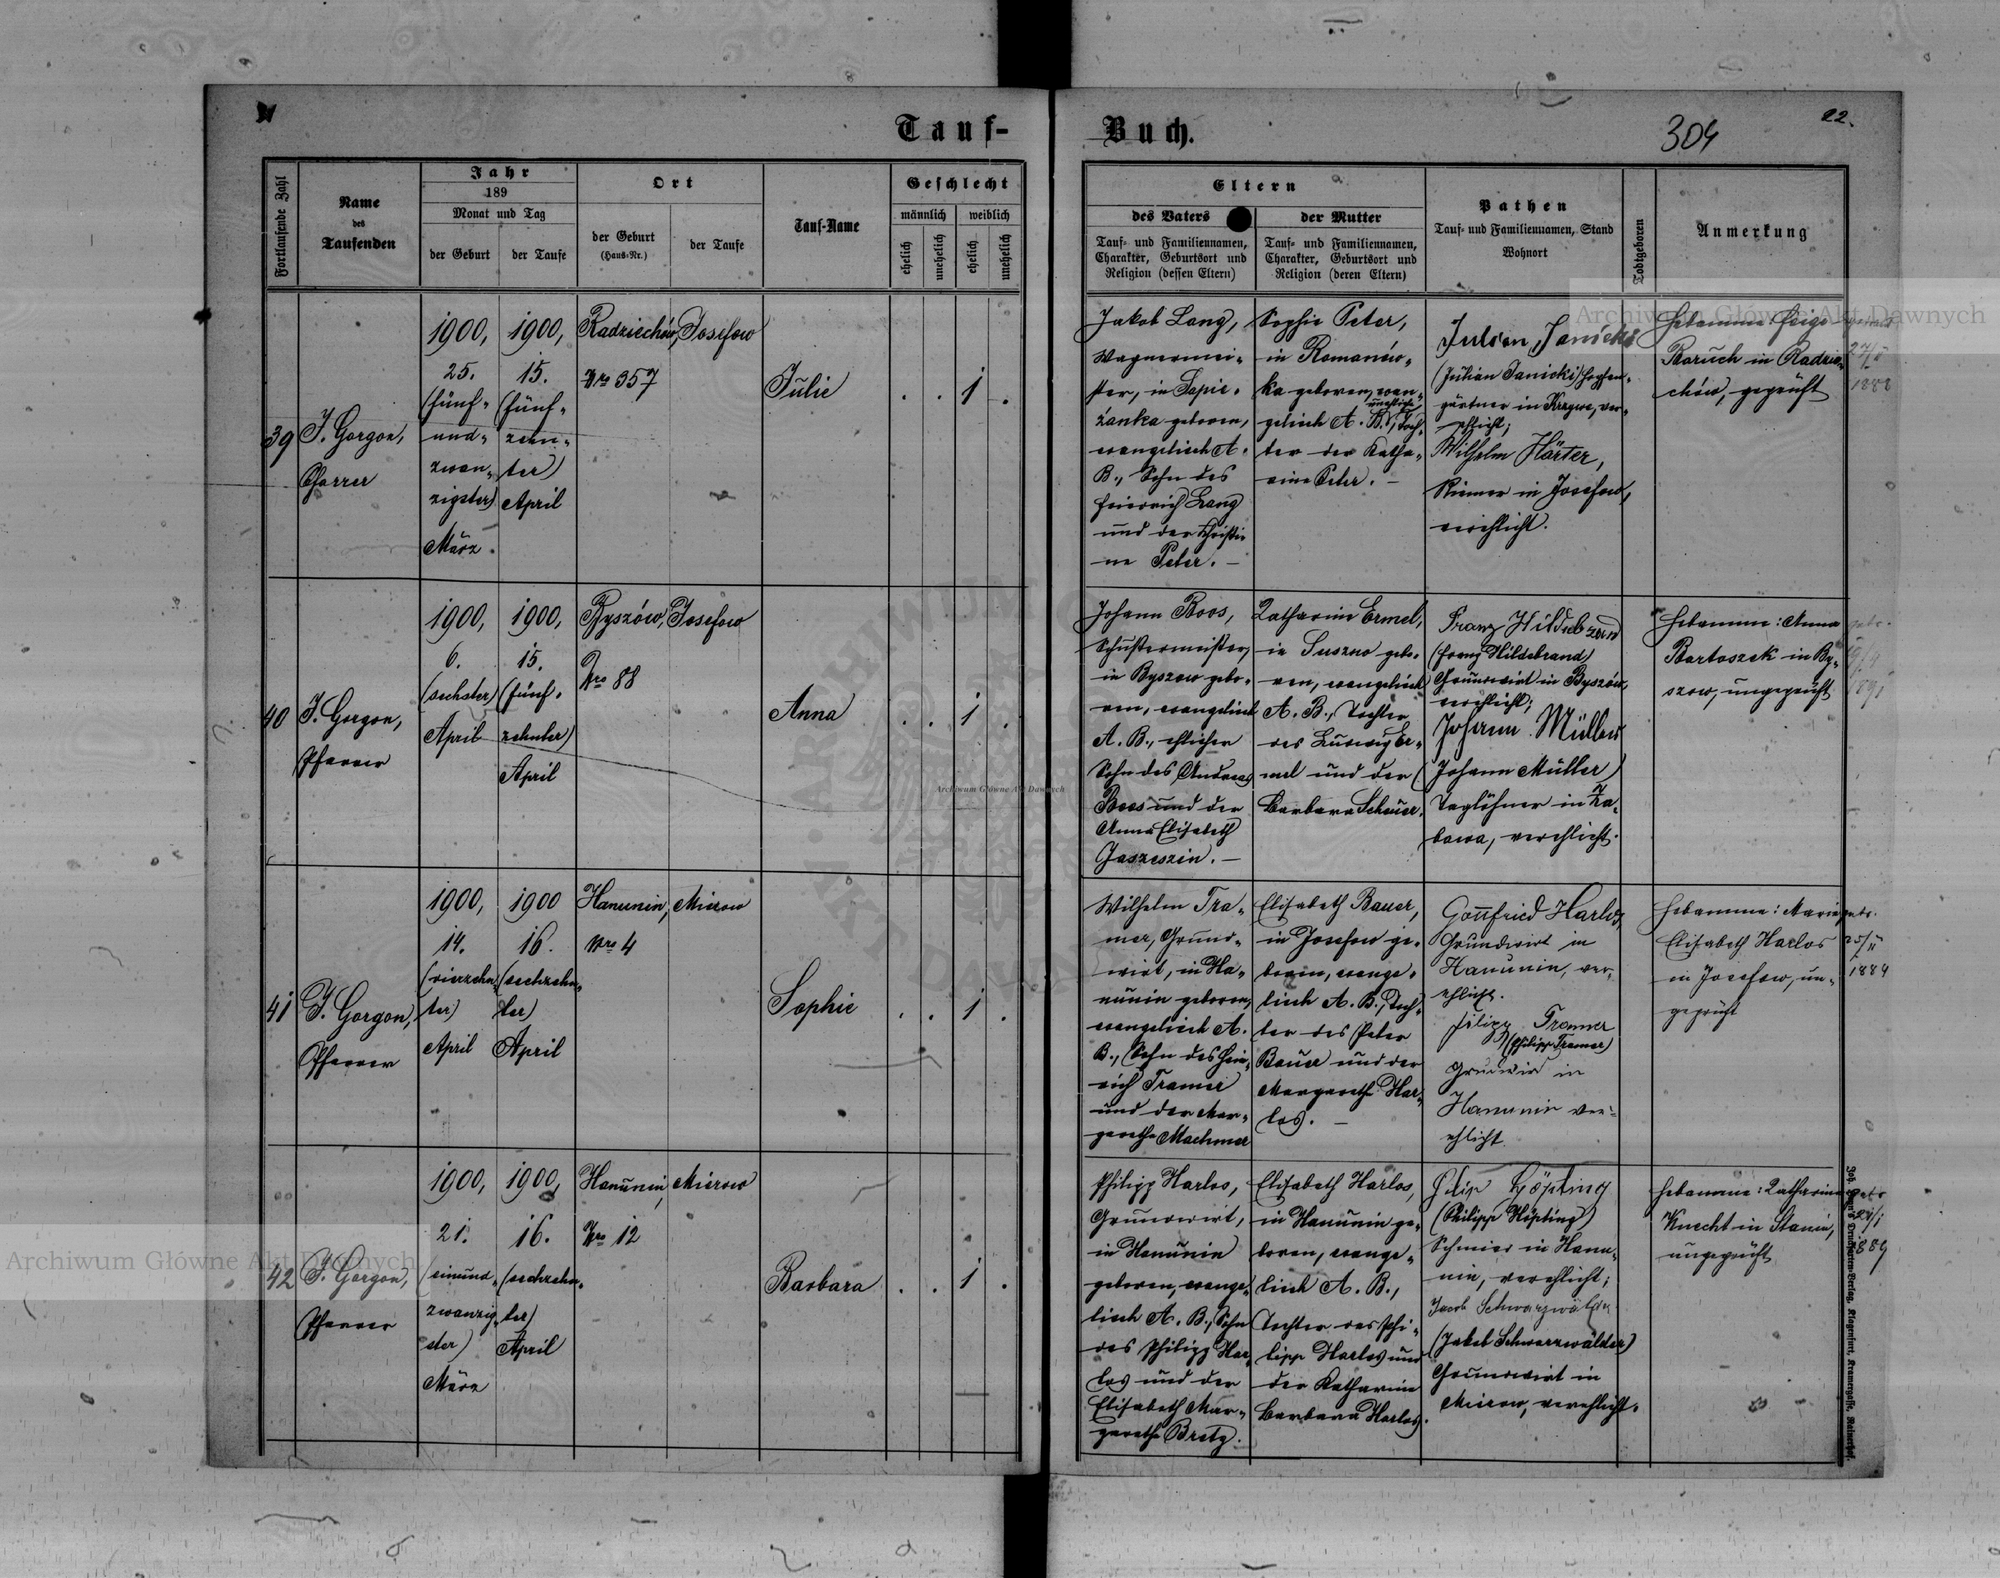 Tauf-
Buch.
304
22.
Fortlaufende Zahl
Name
des
Taufenden
Jahr
189
Monat und Tag
der Geburt
der Taufe
Ort
der Geburt
(Haus-Nr.)
der Taufe
Tauf-Name
Geschlecht
männlich
weiblich
ehelich
unehelich
ehelich
unehelich
Eltern
des Vaters
Tauf- und Familiennamen,
Charakter, Geburtsort und
Religion (dessen Eltern)
der Mutter
Tauf- und Familiennamen,
Charakter, Geburtsort und
Religion (deren Eltern)
Pathen
Tauf- und Familiennamen, Stand
Wohnort
Todtgeboren
Anmerkung
39
J. Gorgon,
Pfarrer
1900,
25.
(fünf-
und-
zwan-
zigster)
März.
1900,
15.
(fünf-
zehn-
ter)
April
Radziechów,
Nro 357
Josefow
Julie
1
Jakob Lang,
Wagnermei-
ster, in Sapie-
żanka geboren,
evangelisch A.
B., Sohn des
Friedrich Lang
und der Christi-
ne Peter. —
Sophie Peter,
in Romanów-
ka geboren, evan-
uneheliche
gelisch A. B., Toch-
ter der Katha-
rina Peter. —
Julian Janicki
(Julian Janicki)
gärtner in
Wilhelm Härter,
Riemer in Josefow,
verehlicht.
Hebamme: Feige
Baruch in Radzie-
chów, geprüft
27/5
1888
40
J. Gorgon,
Pfarrer
1900,
6.
(sechster)
April
1900,
15.
(fünf-
zehnter)
April
Byszów,
Nro 88
Josefow
Anna
1
Johann Boos,
Schustermeister,
in Byszow gebo-
ren, evangelisch
A. B., ehlicher
Sohn des Andreas
Boos und der
Anna Elisabeth
Katharine Ermel,
in Suszno gebo-
ren, evangelisch
A. B., Tochter
des Ludwig Er-
mel und der
Barbara Scheuer.
Franz Hildebrand
(Franz Hildebrand)
Grundwirt in Byszów,
verehlicht;
Johann Müller
(Johann Müller)
Taglöhner in Za-
bawa, verehlicht.
Hebamme: Anna
Bartoszek in By-
szow, ungeprüft
41
J. Gorgon,
Pfarrer
1900,
14.
(vierzehn-
ter)
April
1900
16.
(sechzehn-
ter)
April
Hanunin,
Nro 4
Mierow
Sophie
1
Wilhelm Tra-
mer, Grund-
wirt, in Ha-
nunin geboren,
evangelisch A.
B., Sohn des Hein-
rich Tramer
und der Mar-
garethe Machmer
Elisabeth Bauer,
in Josefow ge-
boren, evange-
lisch A. B., Toch-
ter des Peter
Bauer und der
Margarethe Har-
los. —
Gottfried Harlos,
Grundwirt in
Hanunin, ver-
ehlicht.
Filipp Tramer
(Philipp Tramer)
Grundwirt in
Hanunin ver-
ehlicht.
Hebamme: Marie
Elisabeth Harlos
in Josefow, un-
geprüft
gebr.
25/5
1884
42
J. Gorgon,
Pfarrer
1900,
21.
(einund-
zwanzig-
ster)
März
1900,
16.
(sechzehn-
ter)
April
Hanunin,
Nro 12
Mierow
Barbara
1
Philipp Harlos,
Grundwirt,
in Hanunin
geboren, evange-
lisch A. B., Sohn
des Philipp Har-
los und der
Elisabeth Mar-
garethe Bretz.
Elisabeth Harlos,
in Hanunin ge-
boren, evange-
lisch A. B.,
Tochter des Phi-
lipp Harlos und
der Katharine
Barbara Harlos.
Filip Höpting
(Philipp Höpting)
Schmied in Hanu-
nin, verehlicht;
Jacob Schwarzwälder
(Jakob Schwarzwälder)
Grundwirt in
Mierow, verehlicht.
Hebamme: Katharine
Knecht in Stanin,
ungeprüft
Archiwum Główne Akt Dawnych
Archiwum Główne Akt Dawnych
Archiwum Główne Akt Dawnych